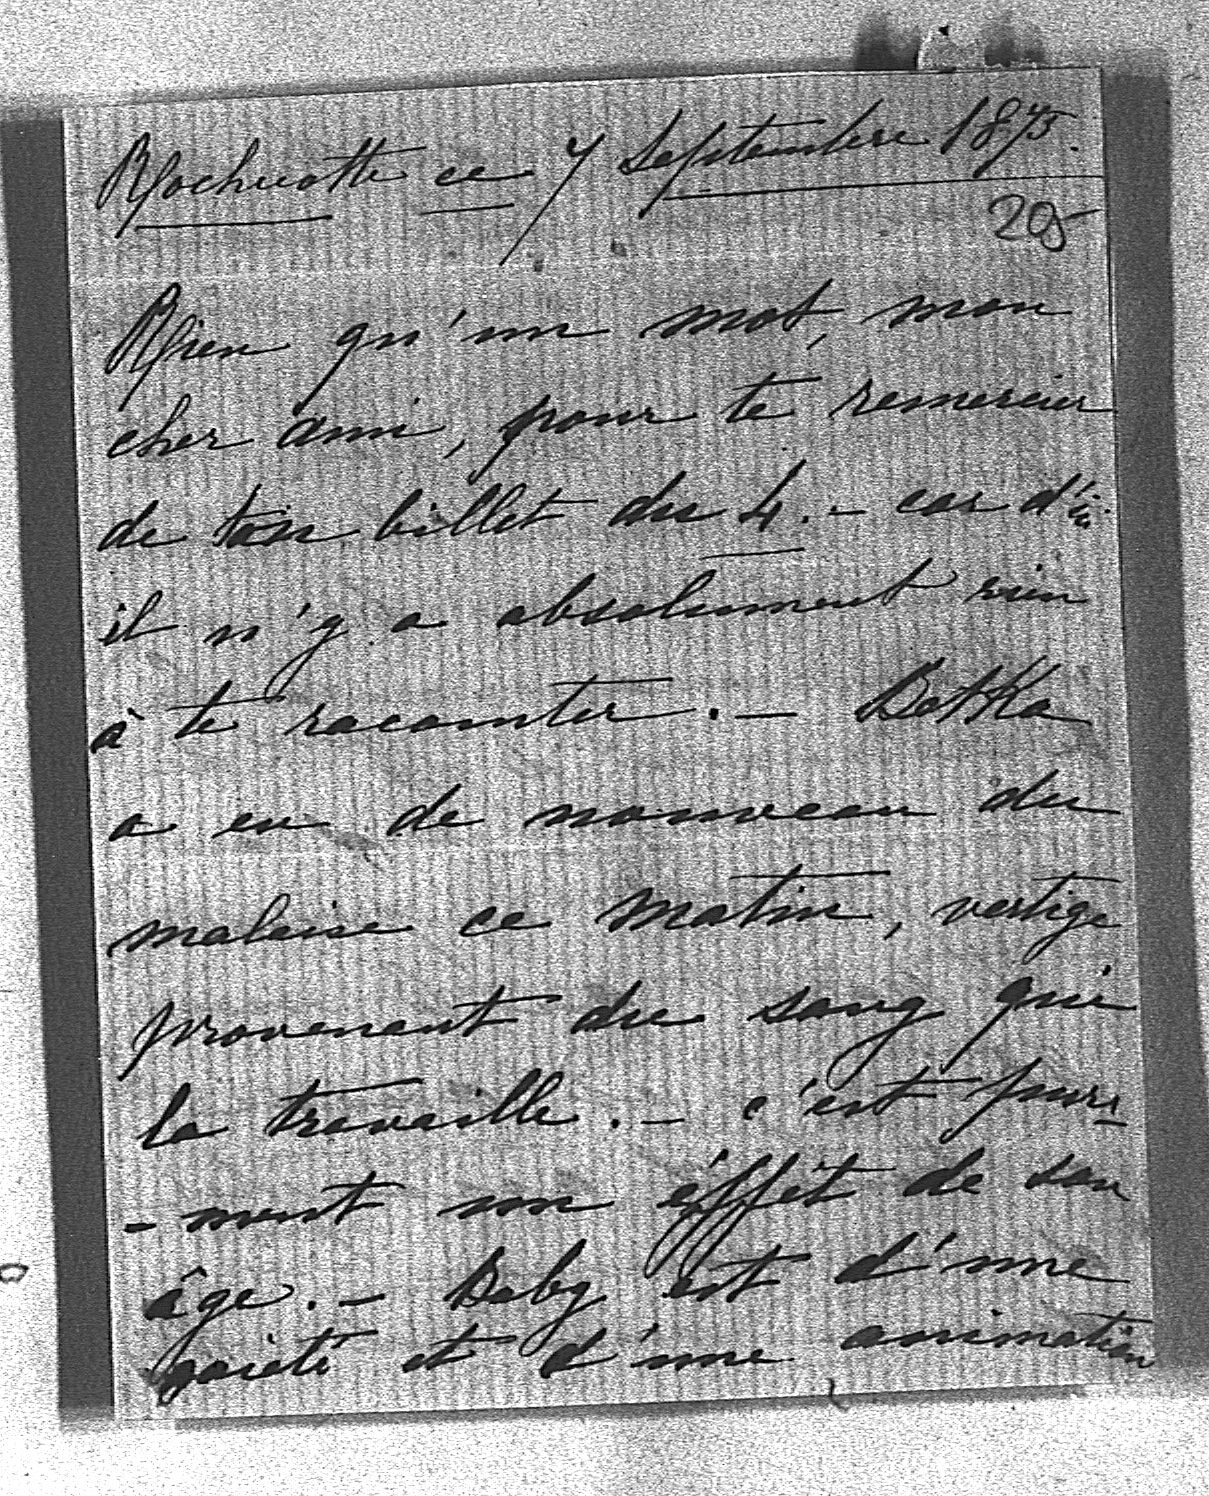 Rochecotte ce 7 Septembre 1875.
205
Rien qu'un mot, mon
cher ami, pour te remercier
de ton billet du 4. – car d'ici
il n'y a absolument rien
à te raconter. – Bottka
a eu de nouveau du
malaise ce matin, vertige
provenant du sang qui
la travaille. – c'est pure-
-ment un éffét de son
âge. – Baby est d'une
gaieté et d'une animation